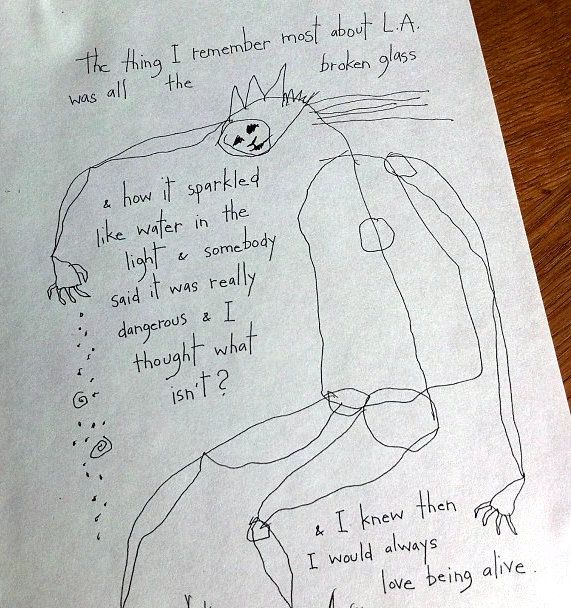 The thing I remember most about L.A.
was all the broken glass
& how it sparkled
like water in the
light & somebody
said it was really
dangerous & I
thought what
isn't?
& I knew then
I would always
love being alive.